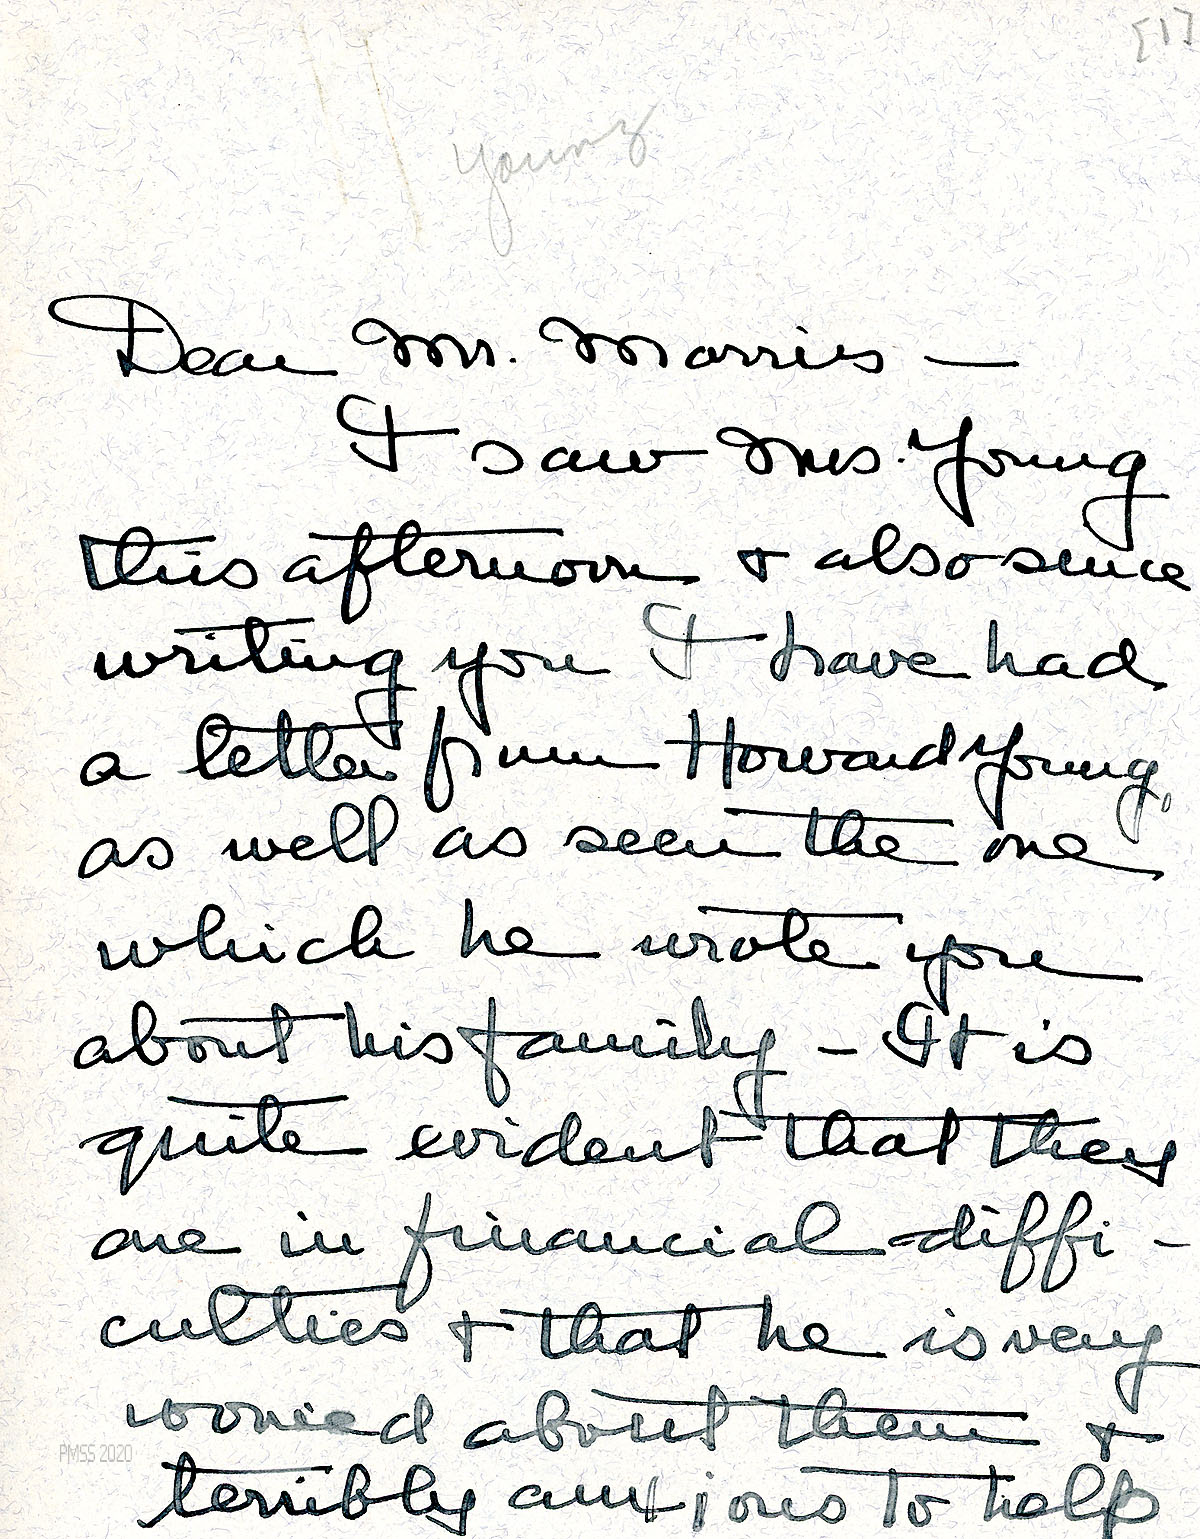 [1]
Young
Dear Mr. Morris —
I saw Mrs. Young
this afternoon & also since
writing you I have had
a letter from Howard Young,
as well as seen the one
which he wrote you
about his family — It is
quite evident that they
are in financial diffi-
culties & that he is very
worried about them &
PMSS 2020
terribly anxious to help